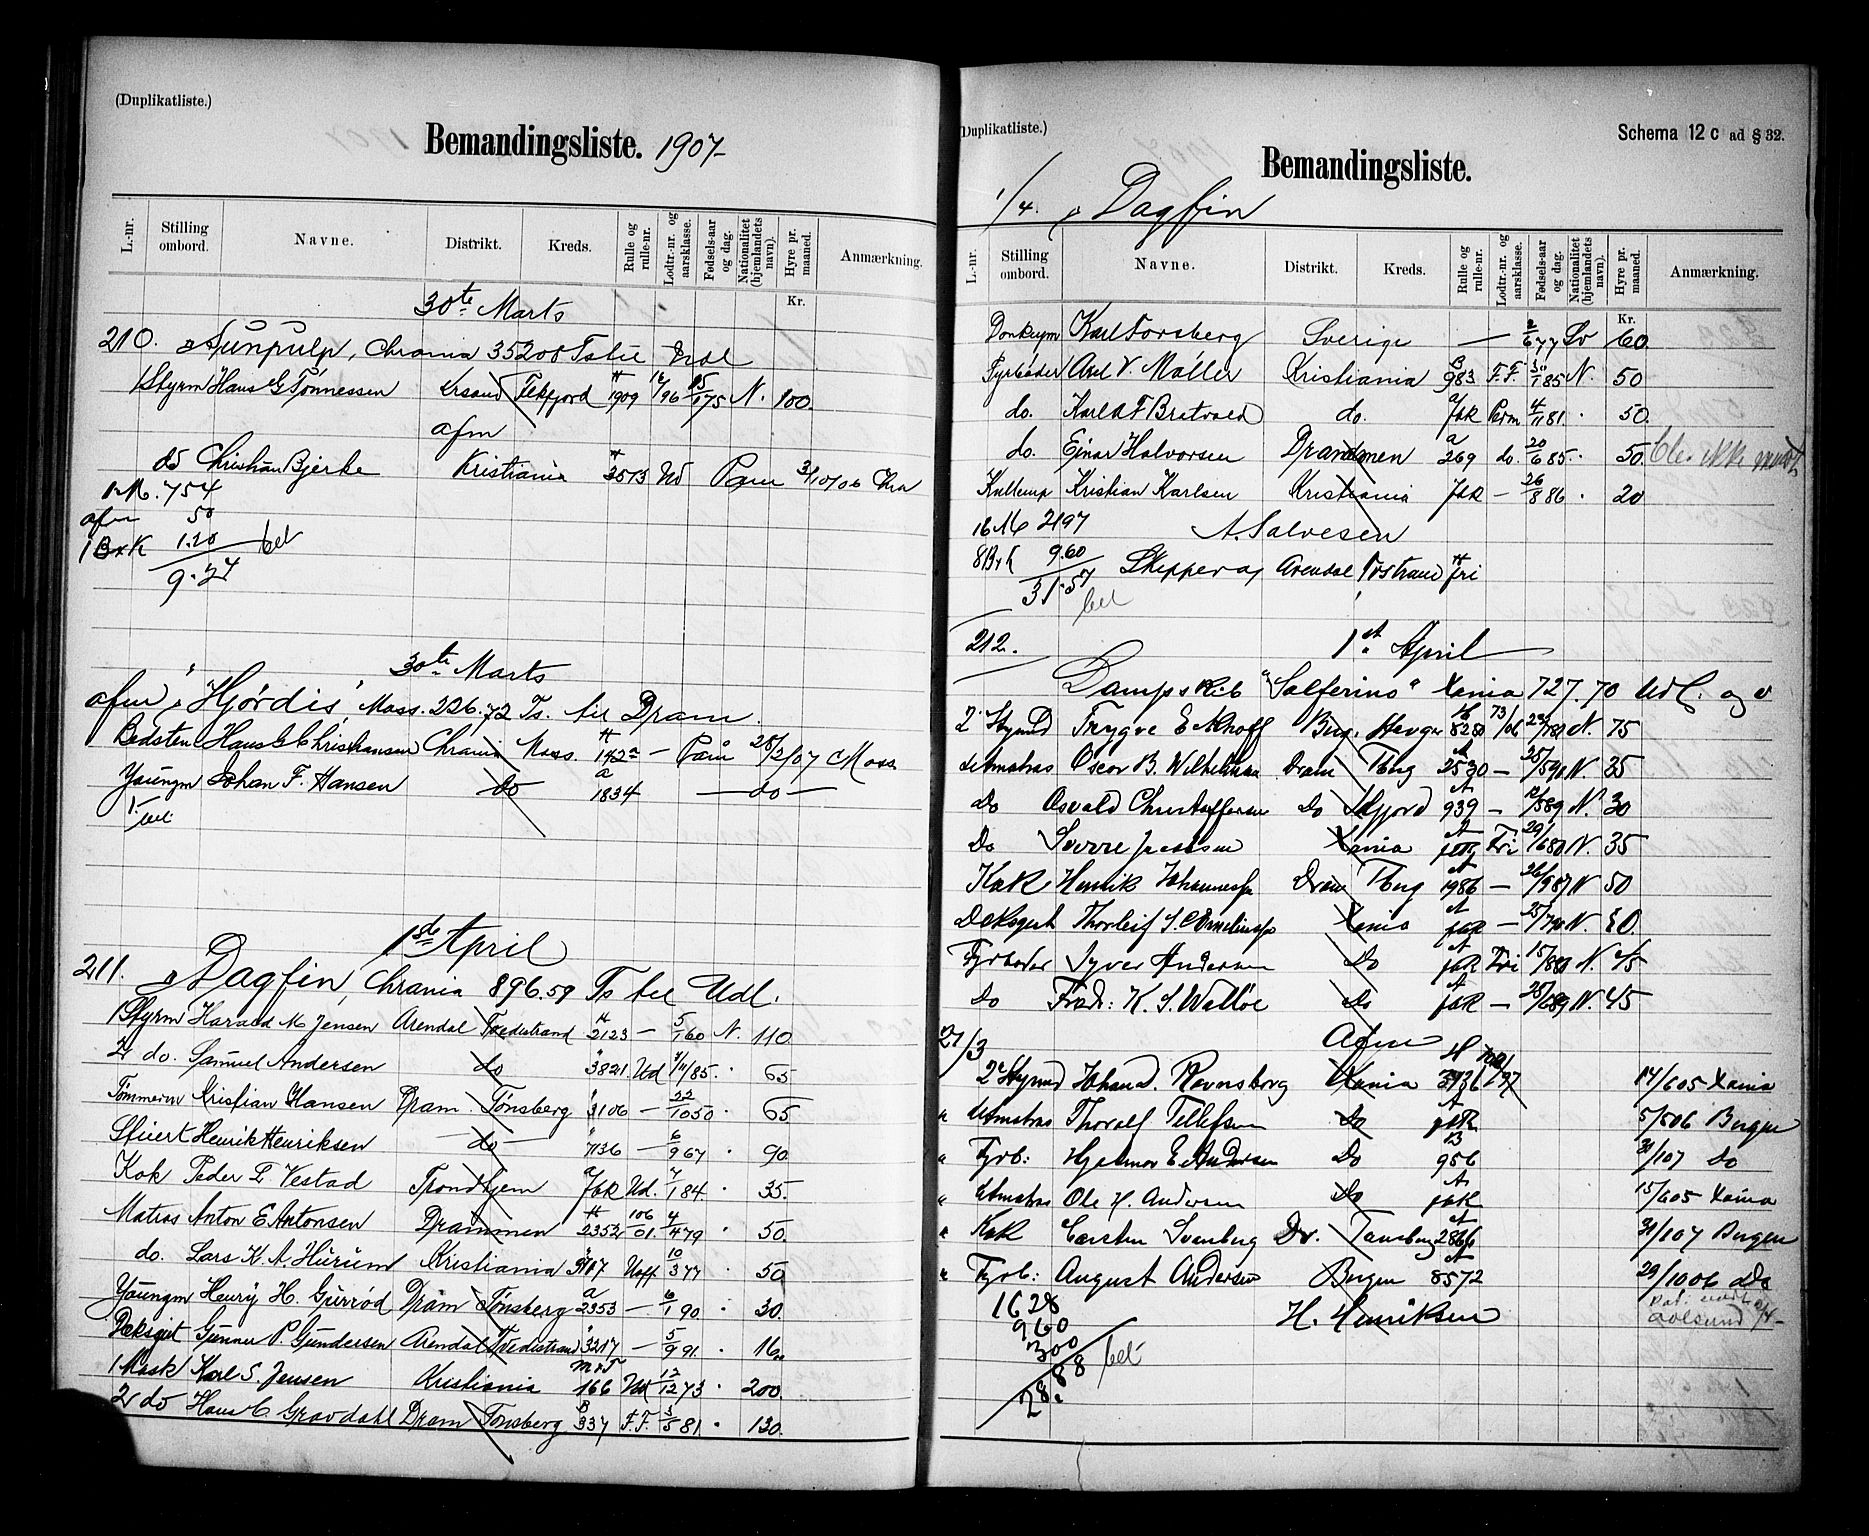 (Duplikatliste.)
Bemandingsliste. 1907
L.-nr. Stilling ombord. Navne. Distrikt. Kreds. Rulle og rulle-nr. Lodtr.-nr. og aarsklasse. Fødsels-aar og dag. Nationalitet (hjemlandets navn). Hyre pr. maaned. Anmærkning.
Kr.
30te Marts
210. Chrania 352 Udl
1 Styrm Hans G Tønnessen Krsand Fekfjord 1909 16/96 N. 100.
afm
do Christian Bjerke Kristiania 3573 Ud Paam 3/10/06 Chra
1 M. 7.54
afm 50
1 B&K 1.20 bet
9.24
30te Marts
afm "Hjørdis" Moss. 226.72 Ts. til Dram.
Bedstem Hans G Christiansen Chrania Moss. 142 — Paam 28/2/07 Moss
Youngm Johan F. Hansen do 1834 — do —
1.- bet
1ste April
211. "Dagfin, Chrania 896.59 Ts til Udl.
1 Styrm Harald M Jensen Arendal Tvedestrand 2123 — 5/1 60 N. 110
2r do. Samuel Andersen do 3821 Ud 1/11/85 . 65
Tømmerm Kristian Hansen Dram. Tønsberg 3106 — 22/10 50 . 65
Stuert Henrik Henriksen — do — 7136 — 6/9 67 . 90.
Kok Peder P. Vestad Trondhjem fbk Ud. 7/1 84 . 35.
Matros Anton E Antonsen Drammen 2352 106/01 4/4 79 . 50.
do. Lars K. A. Hurum Kristiania Uoff 10/3 77 . 50
Youngm Henry H. Gurrød Dram Tønsberg 2353 — 6/1 90 . 30.
Dæksgut Gunnar P. Gundersen Arendal Tvedestrand 3217 — 5/9 91. . 16
1 Mask Karl S. Jensen Kristiania M&F 166 Ud 12/12 73 . 200.
2r do Hans C. Gravdahl Dram Tønsberg B 337 F.F. 3/5 81 . 130.
(Duplikatliste.)
Schema 12 c ad § 32.
Bemandingsliste.
1/4. "Dagfin
L.-nr. Stilling ombord. Navne. Distrikt. Kreds. Rulle og rulle-nr. Lodtr.-nr. og aarsklasse. Fødsels-aar og dag. Nationalitet (hjemlandets navn). Hyre pr. maaned. Anmærkning.
Kr.
Donkeym Karl Forsberg Sverige — 2/6 77 Sv 60.
Fyrbøder Axel V. Møller Kristiania B 983 F.F. 85 N. 50
do. Karl A F Bratvold do. fbk Perm 4/11 81 . 50.
do. Ejnar Halvorsen Drammen a 269 do. 20/6 85 . 50. blev ikke mødt
Kullemp Kristian Karlsen Kristiania fbk — 26/8 86 . 20
16 M 21.97 A. Salvesen
8 B&K 9.60 Skipper af Arendal Østrand fri
31.57
bet
212. 1st April
Dampskib "Solferino" Xania 727.70 Udl. og v
2' Styrmd Trygve Eckhoff Brg. Haugs 828 73/06 N. 75
Letmatros Oscar B. Wilhelmsen Dram Tbrg 2530 — 25/5 90 N. 35
Do Osvald Christoffersen Do Sfjord 939 — 89 N. 30
Do Sverre Jacobsen Xania fbk Fri 29/1 680 N. 35
Kok Henrik Johannesen Dram Tbrg 1986 — 26/9 87 N 50
Dæksgut Thorleif S. Corneliussen Xania fbk — N. 20
Fyrbøder Syver Andersen Do fbk Fri 15/8 80 N. 45
Do Fredr: K. S. Walløe Do fbk — 25/6 89 N. 45
27/3 Afm
2' Styrmd Johan D. Ravnsborg Xania 3936 /97 14/605 Xania
" Letmatros Thoralf Tellefsen Do fbk 5/506 Bergen
" Fyrb: Hjalmar E Andersen Do B 956 31/107 do
" Letmatros Ole H. Andersen Do fbk 15/605 Xania
" Kok Carsten Svanberg Dr. Tønsberg 2866 31/107 Bergen
" Fyrb: August Andersen Bergen 8572 29/1006 do
1628 H. Henriksen Aalesund
960
300 bet
28.88